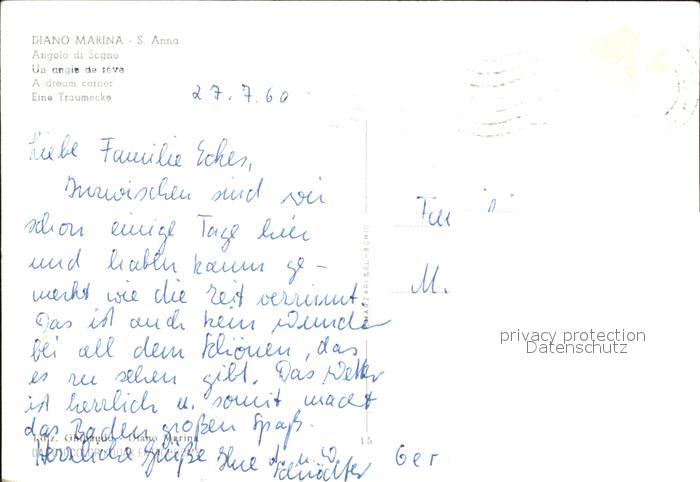 DIANO MARINA - S. Anna
Angolo di Sogno
Un angle de rêve
A dream corner
Eine Traumecke
27.7.60
Liebe Familie Eches,
Inzwischen sind wir
schon einige Tage hier
und haben kaum ge-
merkt wie die Zeit verrinnt.
Das ist auch kein Wunder
bei all dem Schönen, das
es zu sehen gibt. Das Wetter
ist herrlich u. somit macht
das Baden großen Spaß.
Herzliche Grüße Ihre
Diano Marina
15
M.
privacy protection
Datenschutz